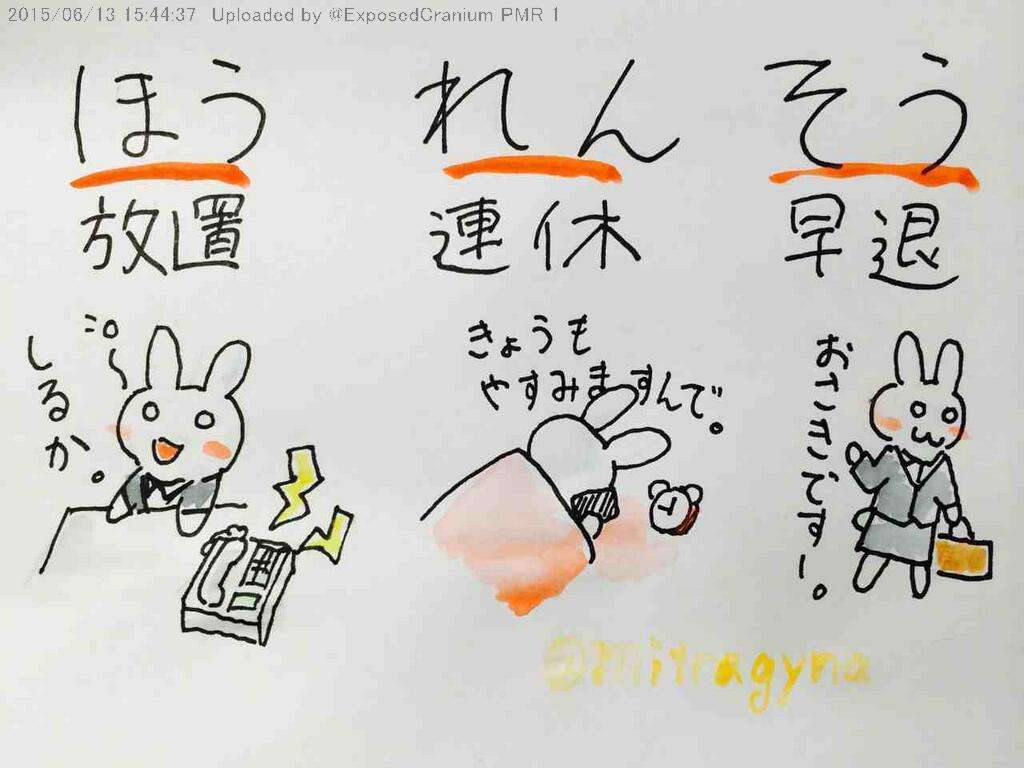 2015/06/13 15:44:37 Uploaded by @ExposedCranium PMR 1
ほう れん そう
放置 連休 早退
しるか。
きょうも
やすみますんで。
おさきでーす。
@Mitragyna